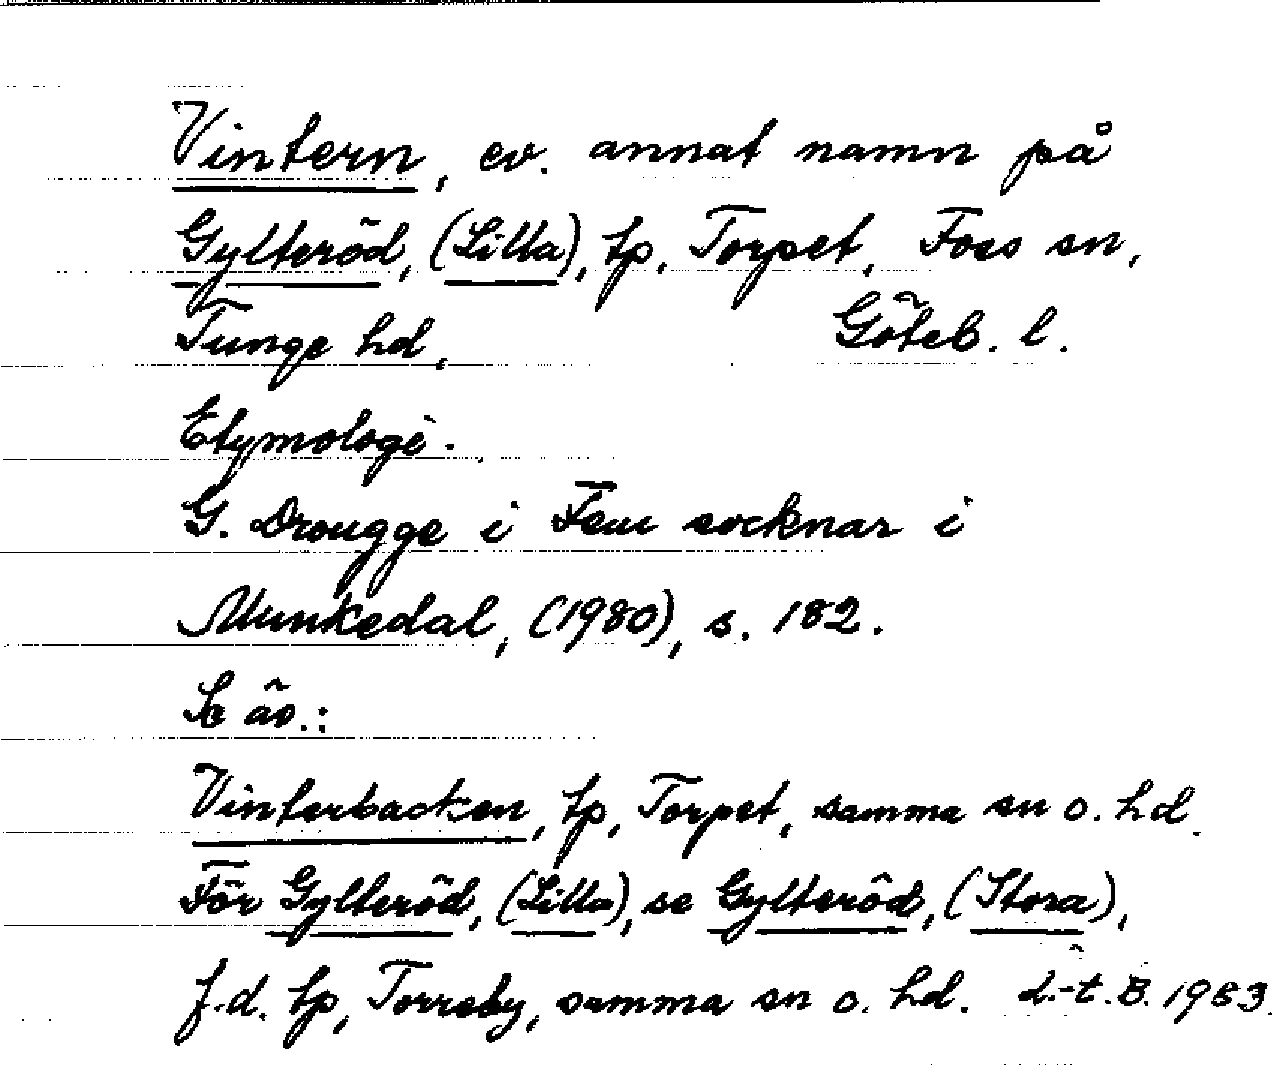 Vintern, ev. annat namn på
Gylteröd, (Lilla), tp, Torpet, Foss sn,
Tunge hd, Göteb. l.
Etymologi.
G. Drougge i Fem socknar i
Munkedal, (1980), s. 182.
Se äv.:
Vinterbacken, tp, Torpet, samma sn o. hd.
För Gylteröd, (Lilla), se Gylteröd, (Stora),
f.d. tp, Torreby, samma sn o. hd.